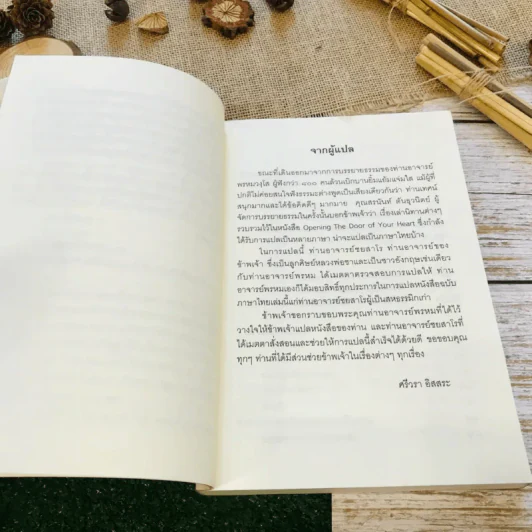 จากผู้แปล
ขณะที่เดินออกมาจากการบรรยายธรรมของท่านอาจารย์
พรหมวงฺโส ผู้ฟังกว่า ๘๐๐ คนล้วนเบิกบานยิ้มแย้มแจ่มใส แม้ผู้ที่
ปกติไม่ค่อยสนใจฟังธรรมะต่างพูดเป็นเสียงเดียวกันว่า ท่านเทศน์
สนุกมากและได้ข้อคิดดีๆ มากมาย คุณสรนันท์ ตันธุวนิตย์ ผู้
จัดการบรรยายธรรมในครั้งนั้นบอกข้าพเจ้าว่า เรื่องเล่านิทานต่างๆ
รวบรวมไว้ในหนังสือ Opening The Door of Your Heart ซึ่งกำลัง
ได้รับการแปลเป็นหลายภาษา น่าจะแปลเป็นภาษาไทยบ้าง
ในการแปลนี้ ท่านอาจารย์ชยสาโร ท่านอาจารย์ของ
ข้าพเจ้า ซึ่งเป็นลูกศิษย์หลวงพ่อชาและเป็นชาวอังกฤษเช่นเดียว
กับท่านอาจารย์พรหม ได้เมตตาตรวจสอบการแปลให้ ท่าน
อาจารย์พรหมเองก็ได้มอบสิทธิ์ทุกประการในการแปลหนังสือฉบับ
ภาษาไทยเล่มนี้แก่ท่านอาจารย์ชยสาโรผู้เป็นสหธรรมิกเก่า
ข้าพเจ้าขอกราบขอบพระคุณท่านอาจารย์พรหมที่ได้ไว้
วางใจให้ข้าพเจ้าแปลหนังสือของท่าน และท่านอาจารย์ชยสาโรที่
ได้เมตตาสั่งสอนและช่วยให้การแปลนี้สำเร็จได้ด้วยดี ขอขอบคุณ
ทุกๆ ท่านที่ได้มีส่วนช่วยข้าพเจ้าในเรื่องต่างๆ ทุกเรื่อง
ศรีวรา อิสสระ